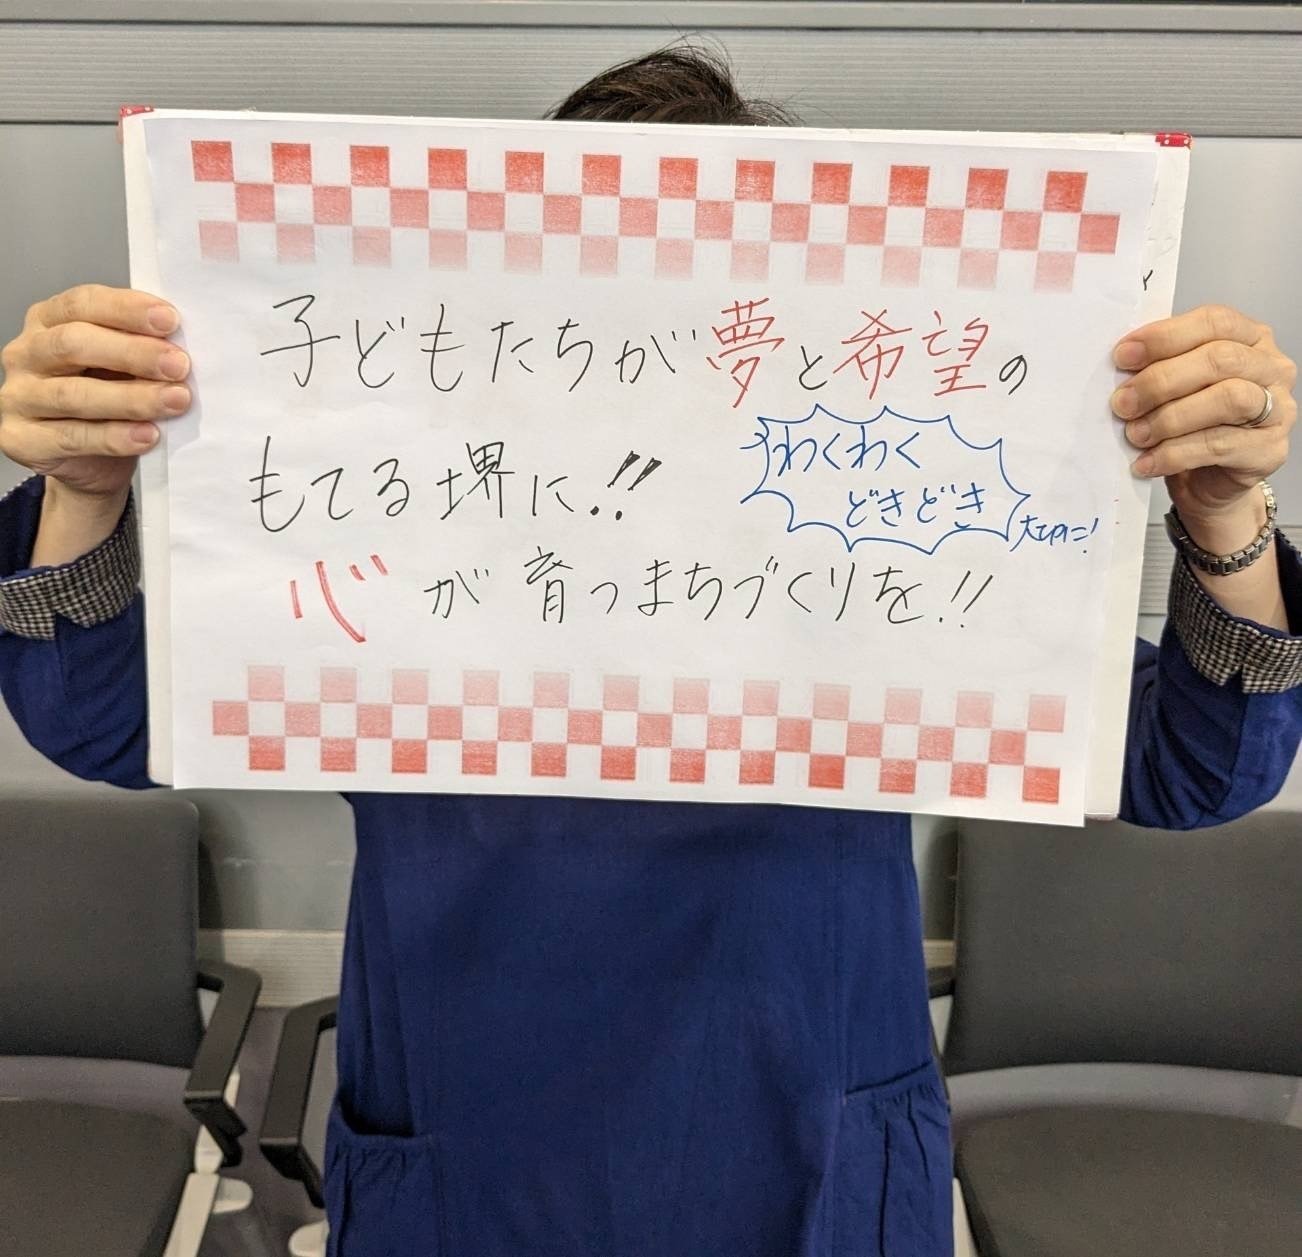 子どもたちが夢と希望の
もてる堺に!!
わくわく
どきどき
大切に!
心が育つまちづくりを!!